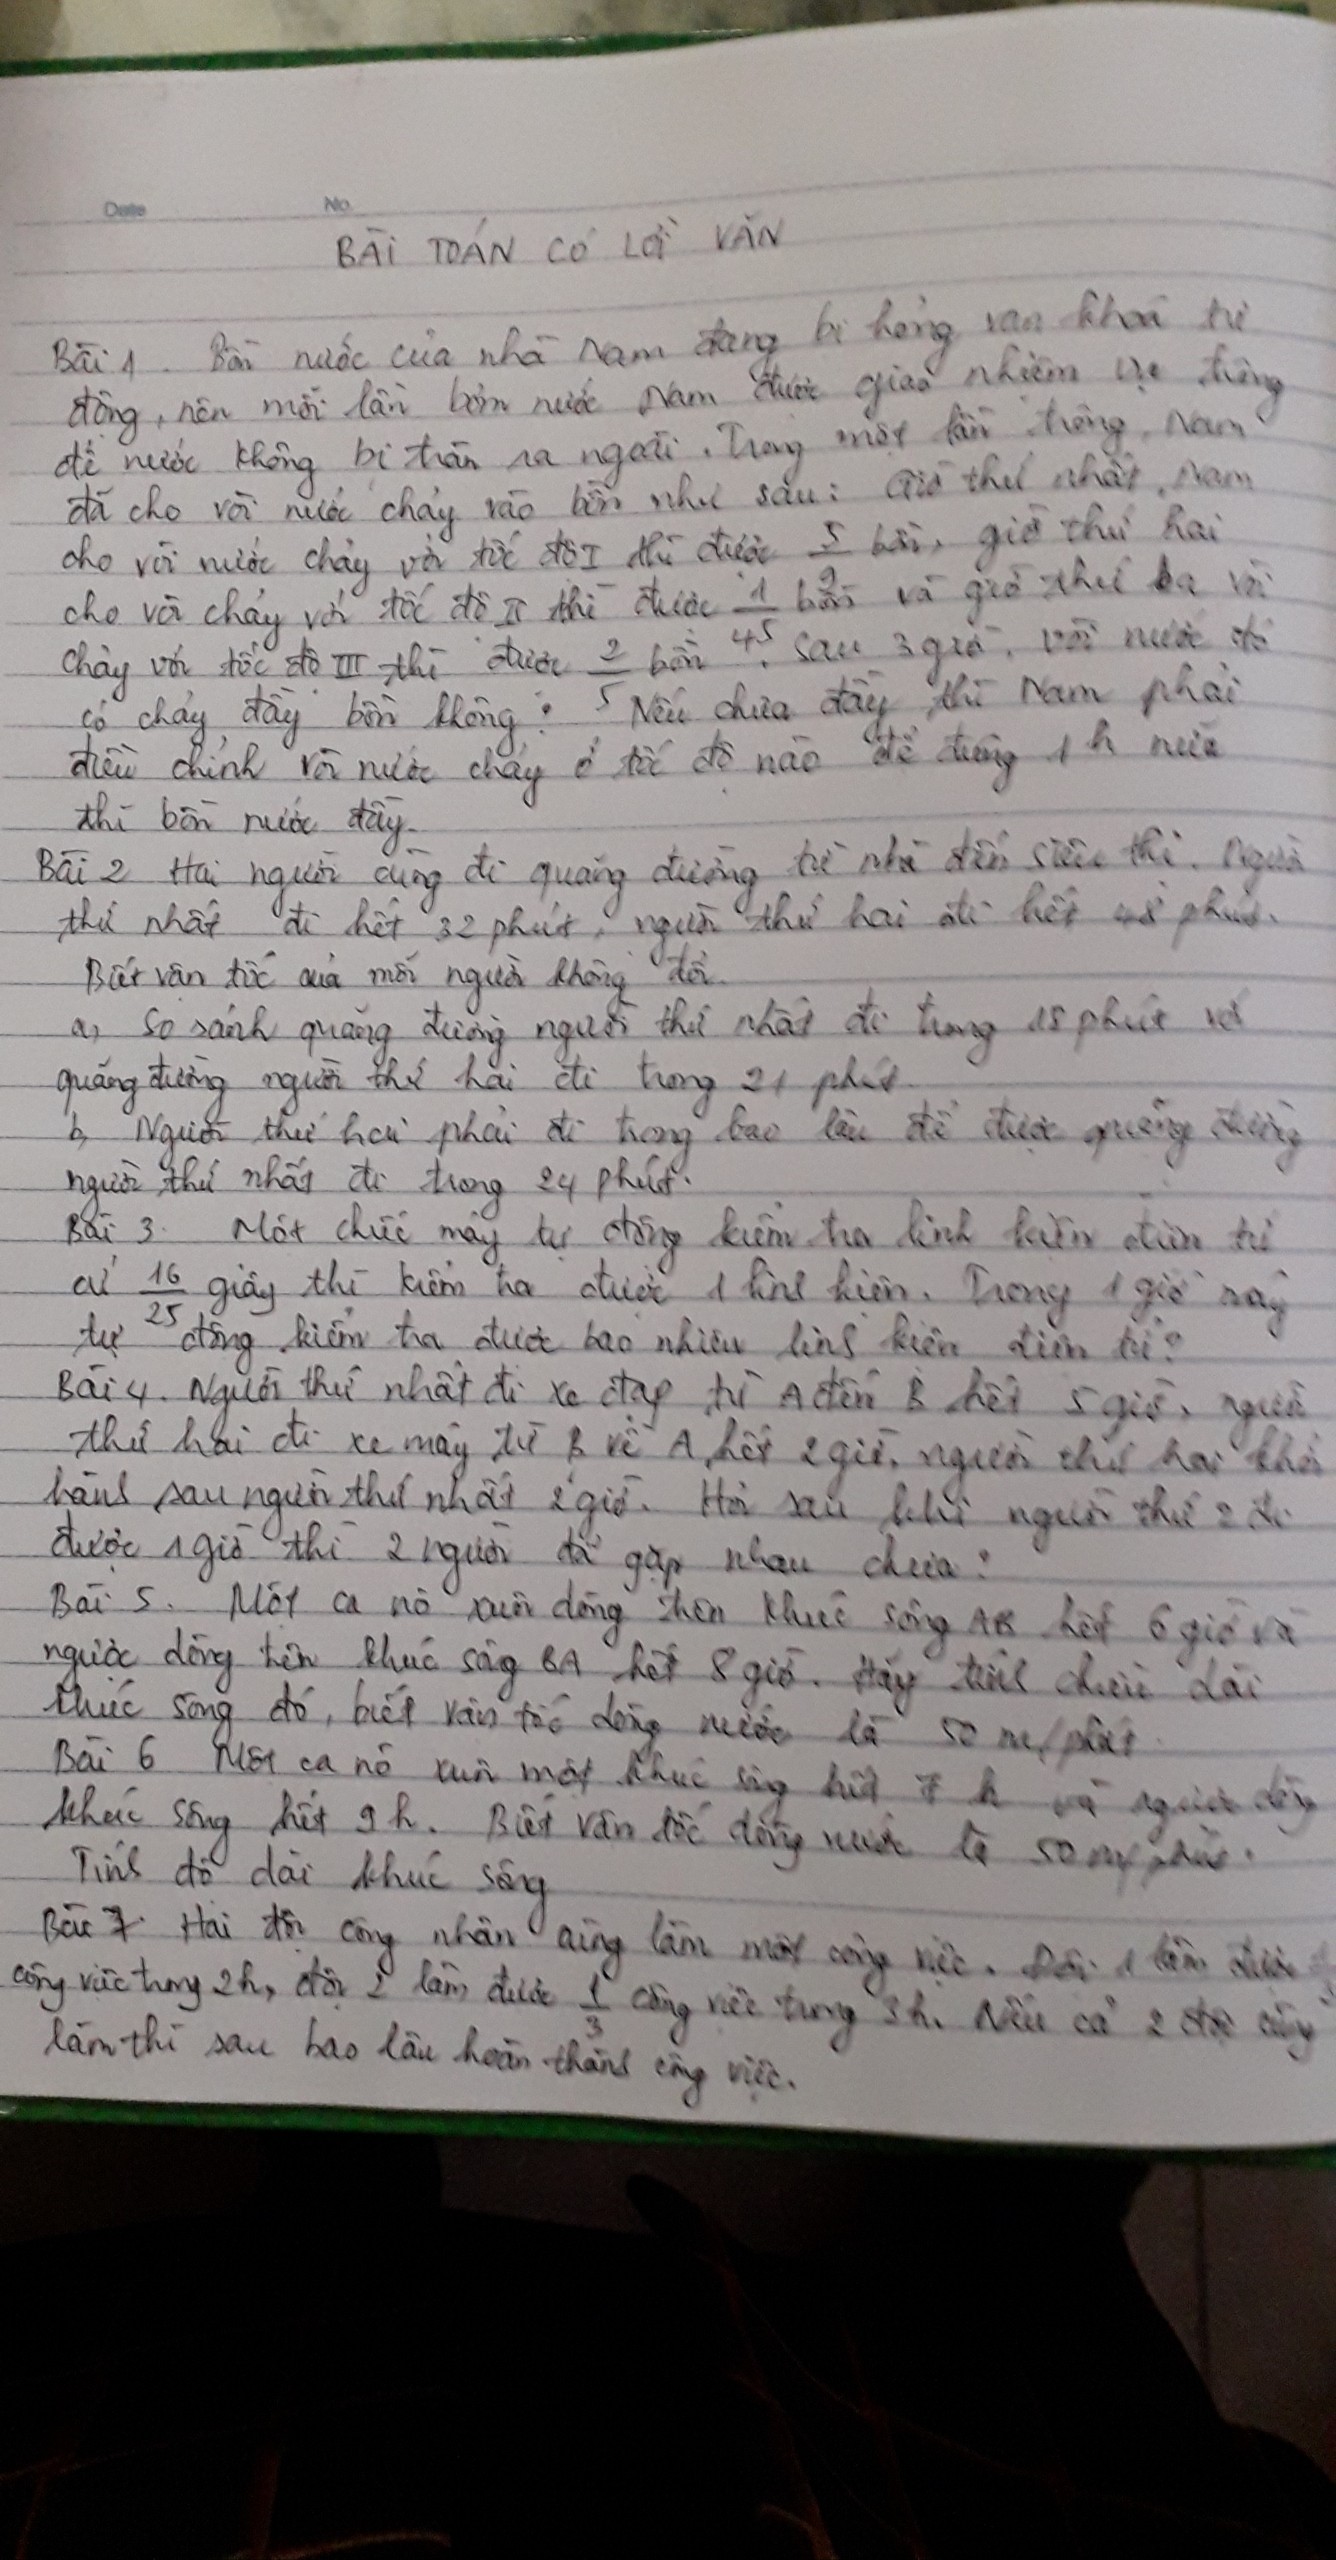 Date No.
BÀI TOÁN CÓ LỜI VĂN
Bài 1. Bồn nước của nhà Nam đang bị hỏng van khoá tự
động, nên mỗi lần bơm nước Nam được giao nhiệm vụ trông
để nước không bị tràn ra ngoài. Trong một lần trông, Nam
đã cho vòi nước chảy vào bồn như sau: Giờ thứ nhất, Nam
cho vòi nước chảy với tốc độ I thì được 5/9 bồn, giờ thứ hai
cho vòi chảy với tốc độ II thì được 1/45 bồn và giờ thứ ba vòi
chảy với tốc độ III thì được 2/5 bồn. Sau 3 giờ, vòi nước đó
có chảy đầy bồn không? Nếu chưa đầy thì Nam phải
điều chỉnh vòi nước chảy ở tốc độ nào để đúng 1h nữa
thì bồn nước đầy.
Bài 2 Hai người cùng đi quãng đường từ nhà đến siêu thị. Người
thứ nhất đi hết 32 phút, người thứ hai đi hết 48 phút.
Biết vận tốc của mỗi người không đổi.
a, So sánh quãng đường người thứ nhất đi trong 18 phút với
quãng đường người thứ hai đi trong 21 phút
b, Người thứ hai phải đi trong bao lâu để được quãng đường
người thứ nhất đi trong 24 phút.
Bài 3. Một chiếc máy tự động kiểm tra linh kiện điện tử
cứ 16/25 giây thì kiểm tra được 1 linh kiện. Trong 1 giờ máy
tự động kiểm tra được bao nhiêu linh kiện điện tử?
Bài 4. Người thứ nhất đi xe đạp từ A đến B hết 5 giờ, người
thứ hai đi xe máy từ B về A hết 2 giờ, người thứ hai khởi
hành sau người thứ nhất 2 giờ. Hỏi sau khi người thứ 2 đi
được 1 giờ thì 2 người đã gặp nhau chưa?
Bài 5. Một ca nô xuôi dòng trên khúc sông AB hết 6 giờ và
ngược dòng trên khúc sông BA hết 8 giờ. Hãy tính chiều dài
khúc sông đó, biết vận tốc dòng nước là 50 m/phút
Bài 6 Một ca nô xuôi một khúc sông hết 7 h và ngược dòng
khúc sông hết 9 h. Biết vận tốc dòng nước là 50 m/phút.
Tính độ dài khúc sông
Bài 7. Hai đội công nhân cùng làm một công việc. Đội 1 làm được
công việc trong 2h, đội 2 làm được 1/3 công việc trong 3h. Nếu cả 2 đội cùng
làm thì sau bao lâu hoàn thành công việc.